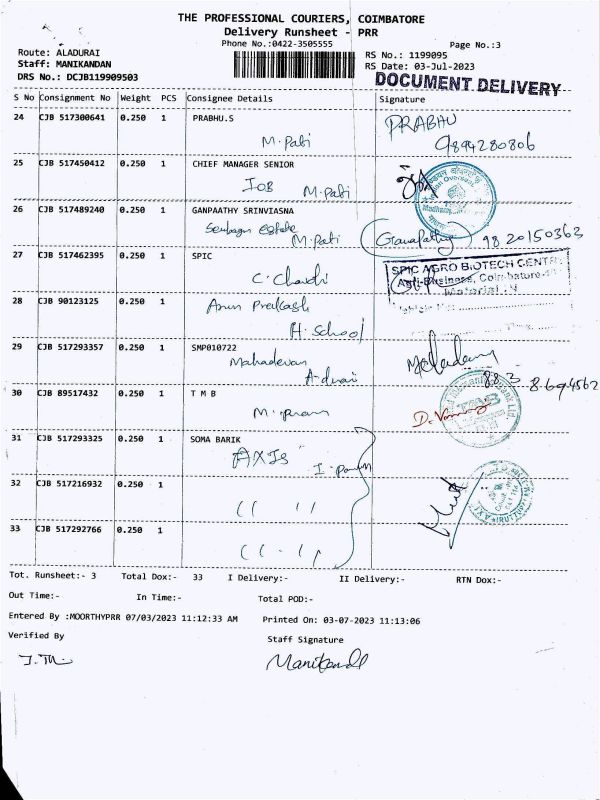 THE PROFESSIONAL COURIERS, COIMBATORE
Delivery Runsheet - PRR
Phone No.:0422-3505555
Page No.:3
Route: ALADURAI
Staff: MANIKANDAN
DRS No.: DCJB119909503
RS No.: 1199095
RS Date: 03-Jul-2023
DOCUMENT DELIVERY
S No Consignment No Weight PCS Consignee Details Signature
24 CJB 517300641 0.250 1 PRABHU.S
M.Pati
PRABHU
9894280806
25 CJB 517450412 0.250 1 CHIEF MANAGER SENIOR
IOB M.Pati
26 CJB 517489240 0.250 1 GANPAATHY SRINVIASNA
M.Pati
Ganapathy 9820150363
27 CJB 517462395 0.250 1 SPIC
SPIC AGRO BIOTECH CENTRE
Agri-Business, Coimbatore
28 CJB 90123125 0.250 1
H. School
29 CJB 517293357 0.250 1 SMP010722
Mahadevan
30 CJB 89517432 0.250 1 T M B
31 CJB 517293325 0.250 1 SOMA BARIK
AXIS
32 CJB 517216932 0.250 1
33 CJB 517292766 0.250 1
Tot. Runsheet:- 3 Total Dox:- 33 I Delivery:- II Delivery:- RTN Dox:-
Out Time:- In Time:- Total POD:-
Entered By :MOORTHYPRR 07/03/2023 11:12:33 AM Printed On: 03-07-2023 11:13:06
Verified By Staff Signature
Manikandl